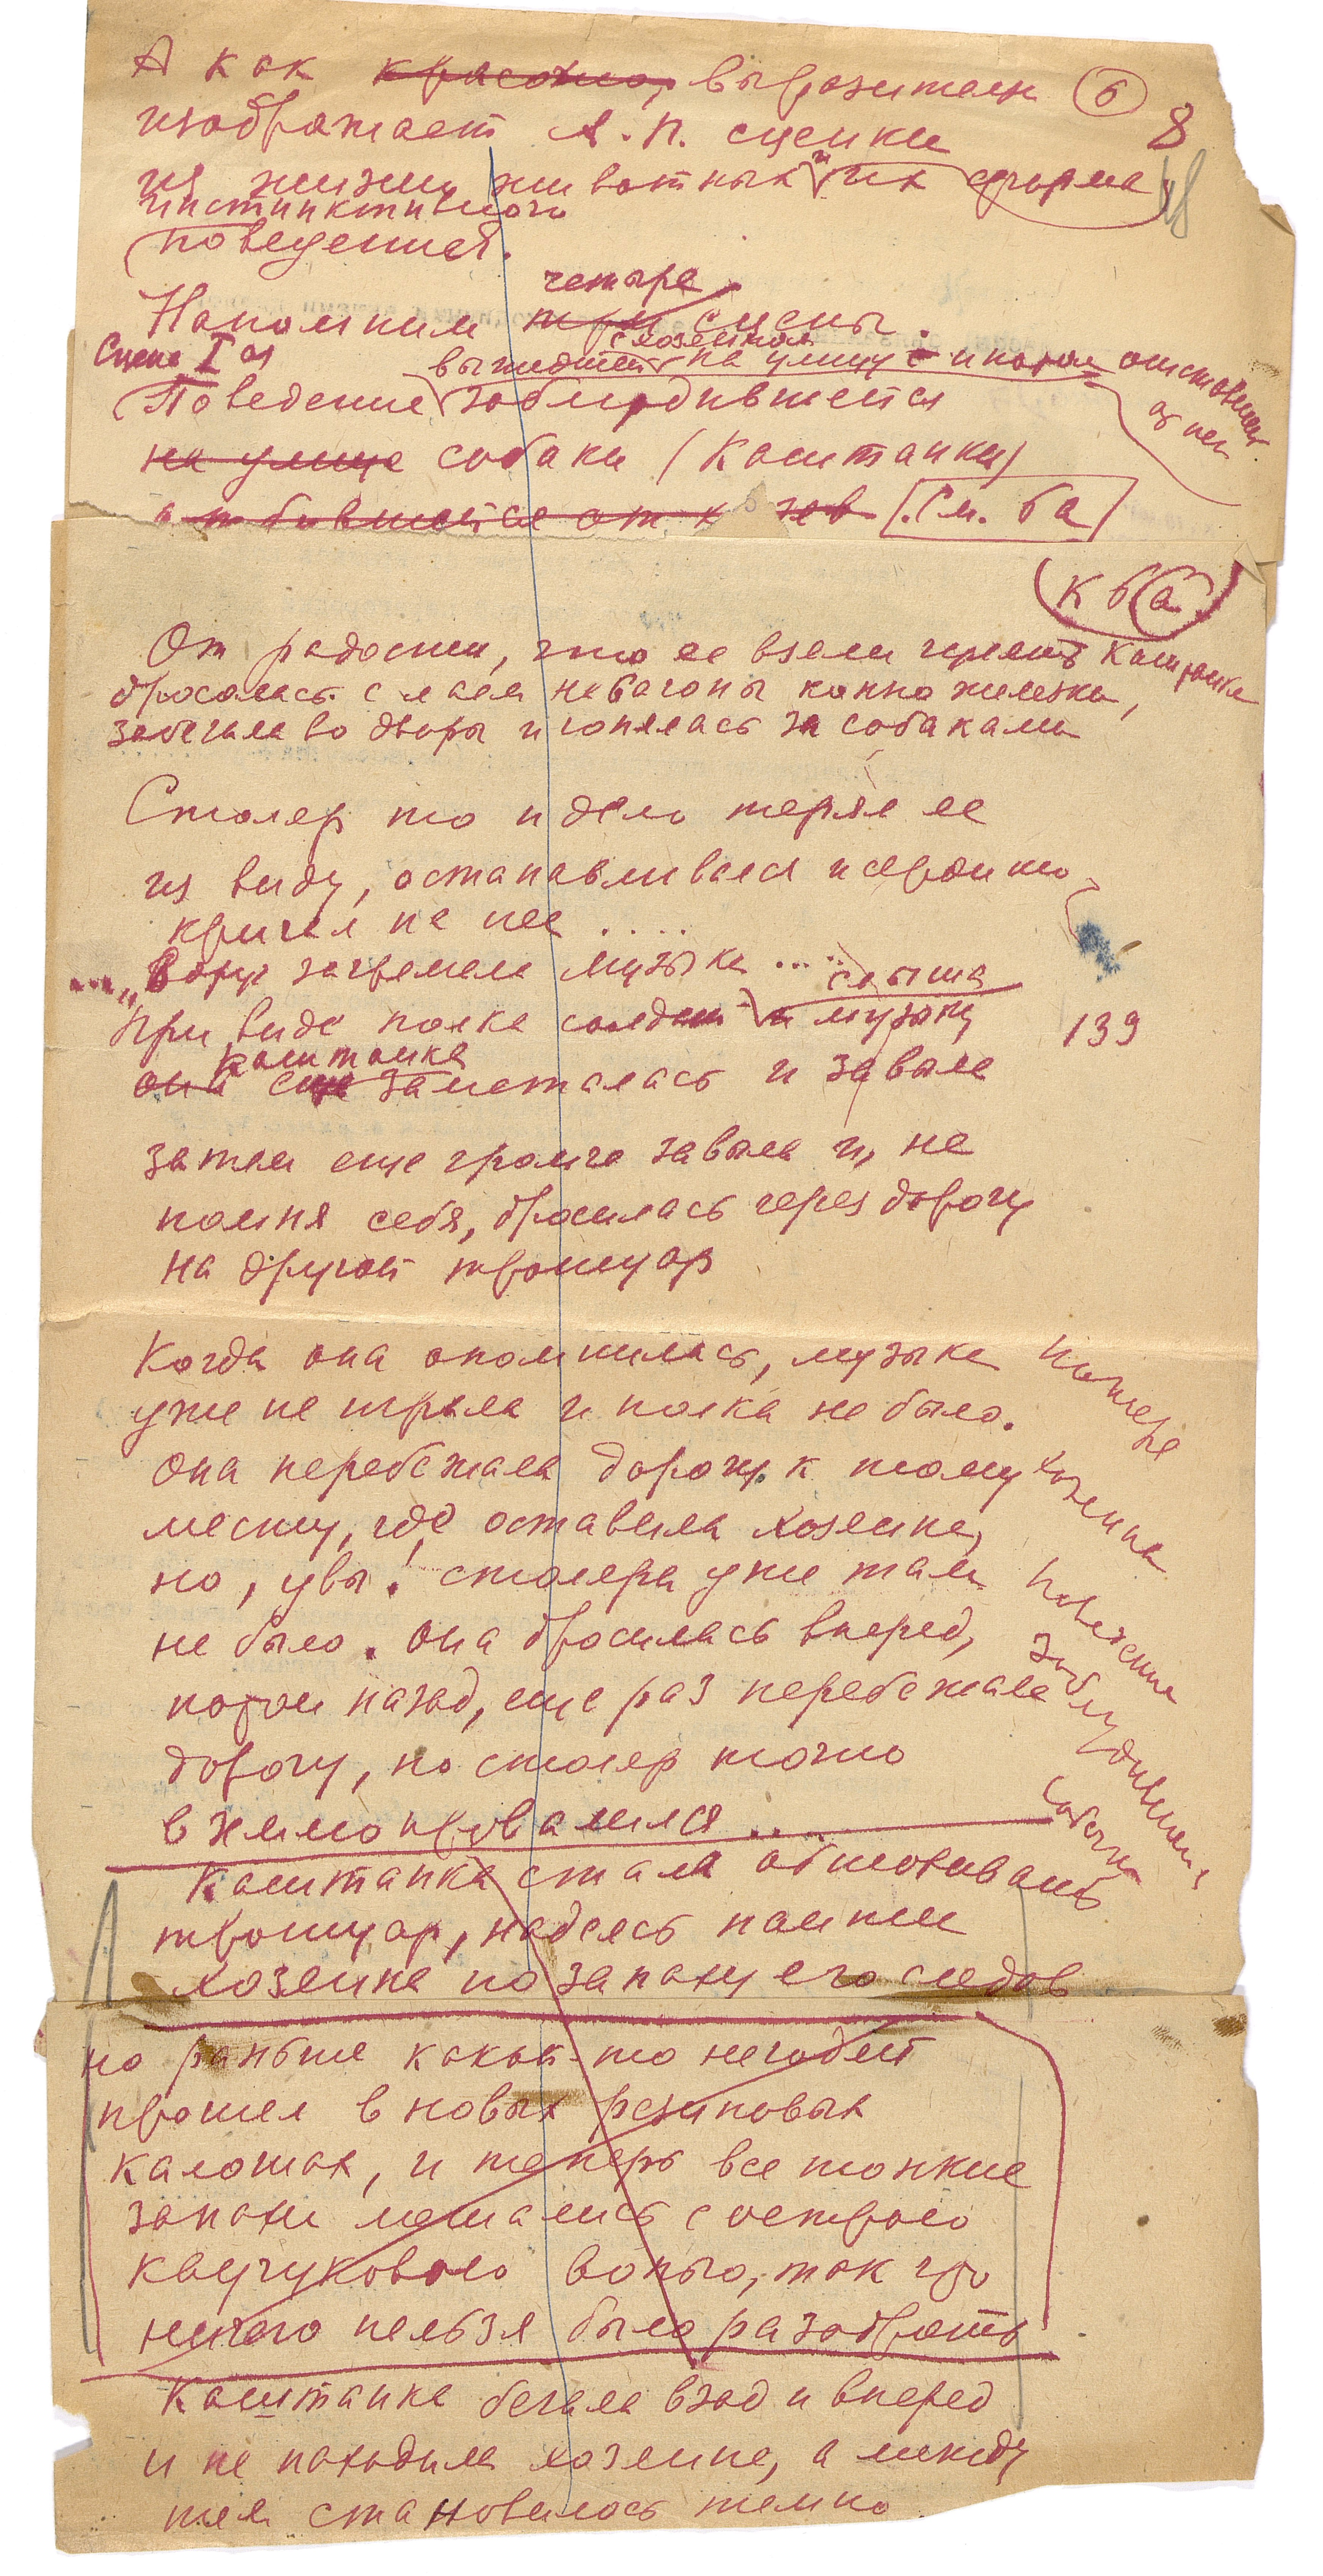 А как красочно, выразительн
6
8
18
изображает А. П. сценки
из жизни животных и их форма
инстинктивного
поведения.
четыре
Напомним три сцены.
Сцена I ая
с хозяином
вышедшей на улицу и потом отставшей
от нег
Поведение заблудившейся
на улице собаки (Каштанки)
отбившейся от х [См. 6а]
К 6 а
От радости, что ее взяли гулять Каштанка
бросалась с лаем на вагоны конно железки,
забегала во дворы и гонялась за собаками
Столяр то и дело терял ее
из виду, останавливался и сердито
кричал на нее ....
..... „Вдруг загремела музыка .....
слыша
При виде полка солдат и музыку
139
Каштанка
она еще заметалась и завыла
затем еще громче завыла и, не
помня себя, бросилась через дорогу
на другой тротуар
Когда она опомнилась, музыка
уже не играла и полка не было.
Она перебежала дорогу к тому
месту, где оставила хозяина,
но, увы! столяра уже там
не было. Она бросилась вперед,
потом назад, еще раз перебежала
дорогу, но столяр точно
в землю провалился ....
Потеря
хозяина
Поведение
заблудившейся
собачки
Каштанка стала обнюхивать
тротуар, надеясь найти
хозяина по запаху его следов
но раньше какой-то негодяй
прошел в новых резиновых
калошах, и теперь все тонкие
запахи мешались с острою
каучуковою вонью, так что
ничего нельзя было разобрать
Каштанка бегала взад и вперед
и не находила хозяина, а между
тем становилось темно